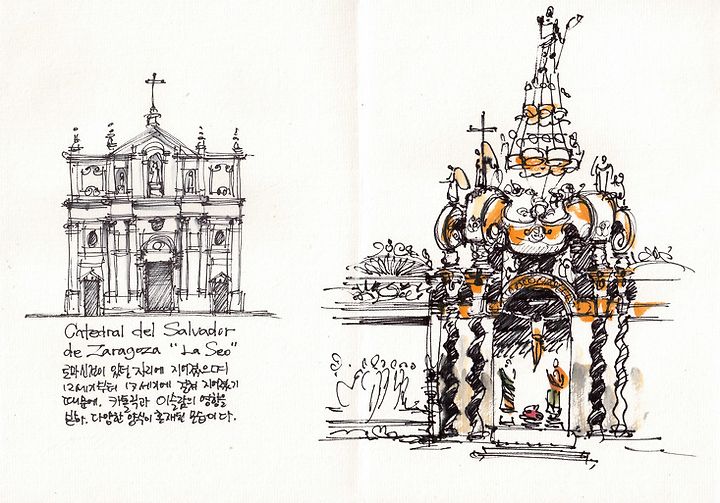 Catedral del Salvador
de Zaragoza "La Seo"
로마신전이 있던 자리에 지어졌으며
12세기부터 17세기에 걸쳐 지어졌기
때문에, 카톨릭과 이슬람의 영향을
받아. 다양한 양식이 혼재된 모습이다.